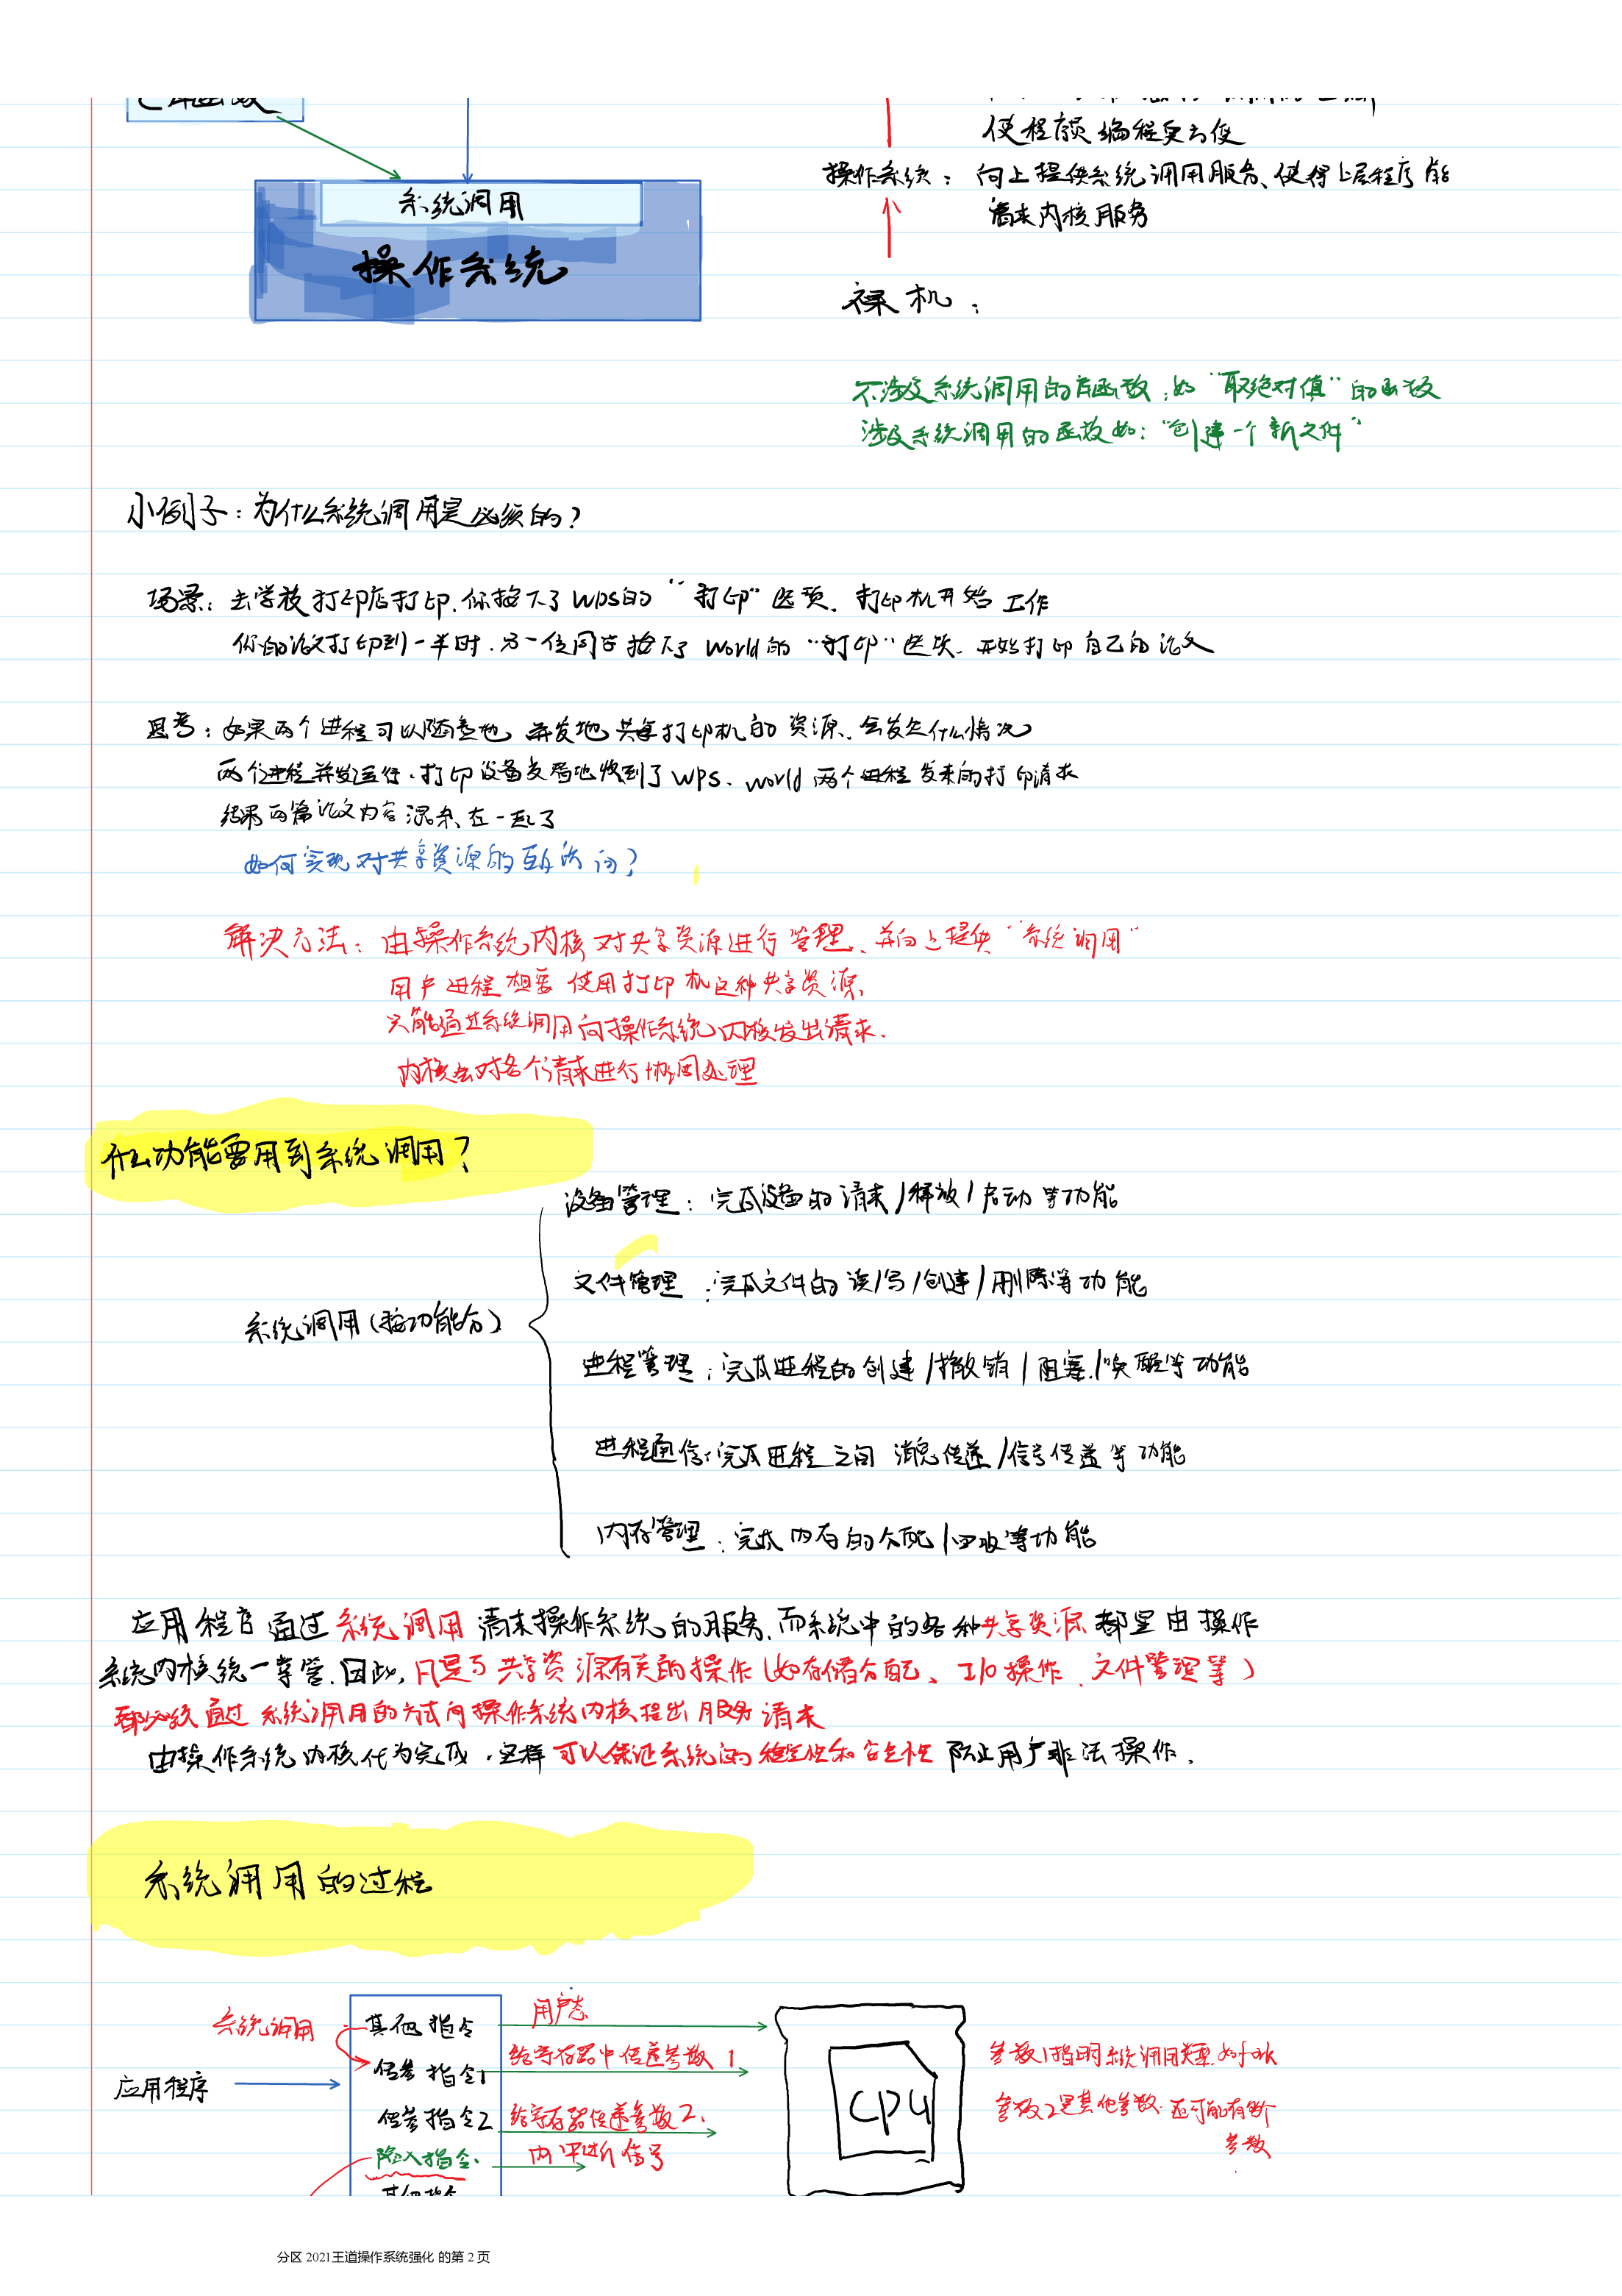 使程序员编程更方便
系统调用
操作系统
操作系统：向上提供系统调用服务、使得上层程序能
请求内核服务
裸机：
不涉及系统调用的库函数：如“取绝对值”的函数
涉及系统调用的函数如：“创建一个新文件”
小例子：为什么系统调用是必须的？
场景：去学校打印店打印.你按下了WPS的“打印”选项、打印机开始工作
你的论文打印到一半时.另一位同学按下了World的“打印”选项、开始打印自己的论文
思考：如果两个进程可以随意地、并发地共享打印机的资源、会发生什么情况
两个进程并发运行.打印设备交替地收到了WPS、world两个进程发来的打印请求
结果两篇论文内容混杂在一起了
如何实现对共享资源的互斥访问？
解决方法：由操作系统内核对共享资源进行管理、并向上提供“系统调用”
用户进程想要使用打印机这种共享资源、
只能通过系统调用向操作系统内核发出请求.
内核会对各个请求进行协调处理
什么功能要用到系统调用？
设备管理：完成设备的请求/释放/启动等功能
文件管理：完成文件的读/写/创建/删除等功能
系统调用（按功能分）
进程管理：完成进程的创建/撤销/阻塞/唤醒等功能
进程通信：完成进程之间消息传递/信号传递等功能
内存管理：完成内存的分配/回收等功能
应用程序通过系统调用请求操作系统的服务.而系统中的各种共享资源都是由操作
系统内核统一掌管.因此,凡是与共享资源有关的操作（如存储分配、I/O操作、文件管理等）
都必须通过系统调用的方式向操作系统内核提出服务请求
由操作系统内核代为完成.这样可以保证系统的稳定性和安全性 防止用户非法操作.
系统调用的过程
系统调用
其他指令
用户态
传参指令1
给寄存器中传递参数1
参数1指明系统调用类型.如fork
应用程序
CPU
传参指令2
给寄存器传递参数2.
参数2是其他参数.还可能有
参数
陷入指令.
内中断信号
其他指令
分区 2021王道操作系统强化 的第 2 页